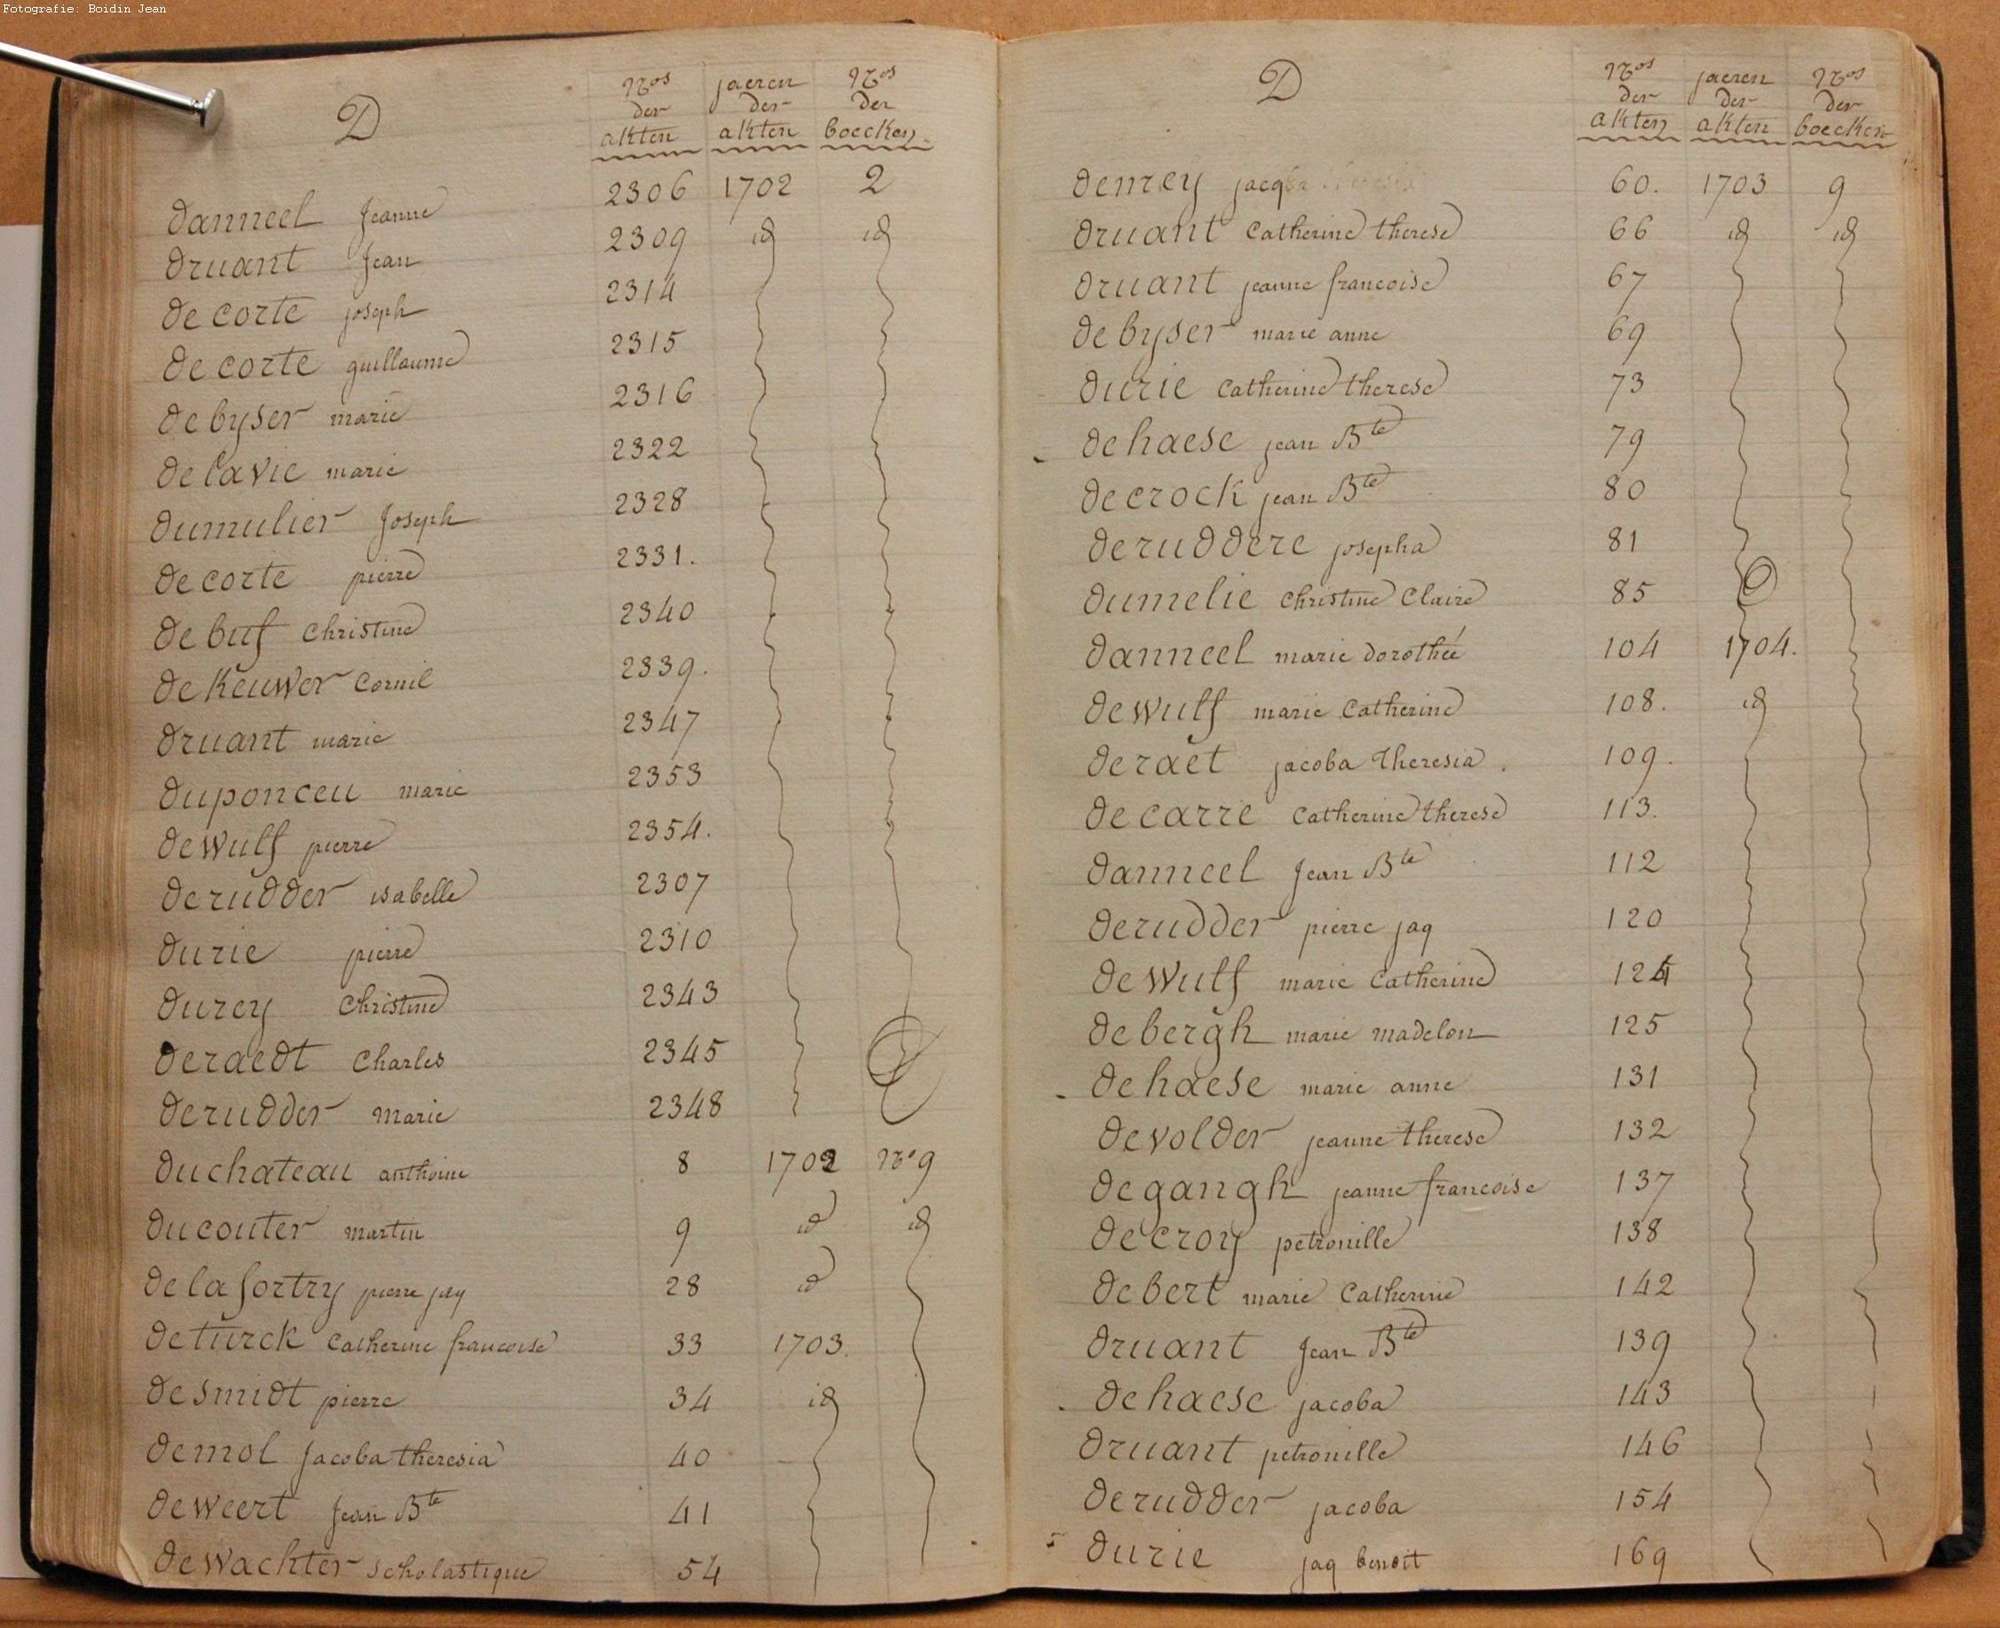 Fotografie: Boidin Jean
D
Nos der akten
jaeren der akten
Nos der boecken
danneel Jeanne 2306 1702 2
druant Jean 2309 id id
de corte joseph 2314
de corte guillaume 2315
de byser marie 2316
de lavie marie 2322
dumulier Joseph 2328
de corte pierre 2331.
de buf Christine 2340
de Keuwer Cornil 2339.
druant marie 2347
duponceu marie 2353
de wulf pierre 2354.
de rudder isabelle 2307
durie pierre 2310
durey Christine 2343
de raedt Charles 2345
de rudder marie 2348
duchateau anthoine 8 1702 No 9
ducouter martin 9 id id
de la fortry pierre jaq 28 id
de turck Catherine francoise 33 1703.
de smidt pierre 34 id
de mol Jacoba theresia 40
de weert Jean Bte 41
de wachter scholastique 54
D
Nos der akten
jaeren der akten
Nos der boecken
de mey 60. 1703 9
druant Catherine therese 66 id id
druant jeanne francoise 67
de byser marie anne 69
durie Catherine therese 73
de haese jean Bte 79
de crock jean Bte 80
de ruddere josepha 81
dumelie Christine Claire 85
danneel marie dorothée 104 1704.
de wulf marie Catherine 108. id
de raet jacoba theresia. 109.
de carre Catherine therese 113.
danneel Jean Bte 112
de rudder pierre jaq 120
de wulf marie Catherine 124
de bergh marie madelon 125
de haese marie anne 131
de volder jeanne therese 132
de gangh jeanne francoise 137
de croy petronille 138
de bert marie Catherine 142
druant Jean Bte 139
de haese jacoba 143
druant petronille 146
de rudder jacoba 154
durie jaq benoit 169